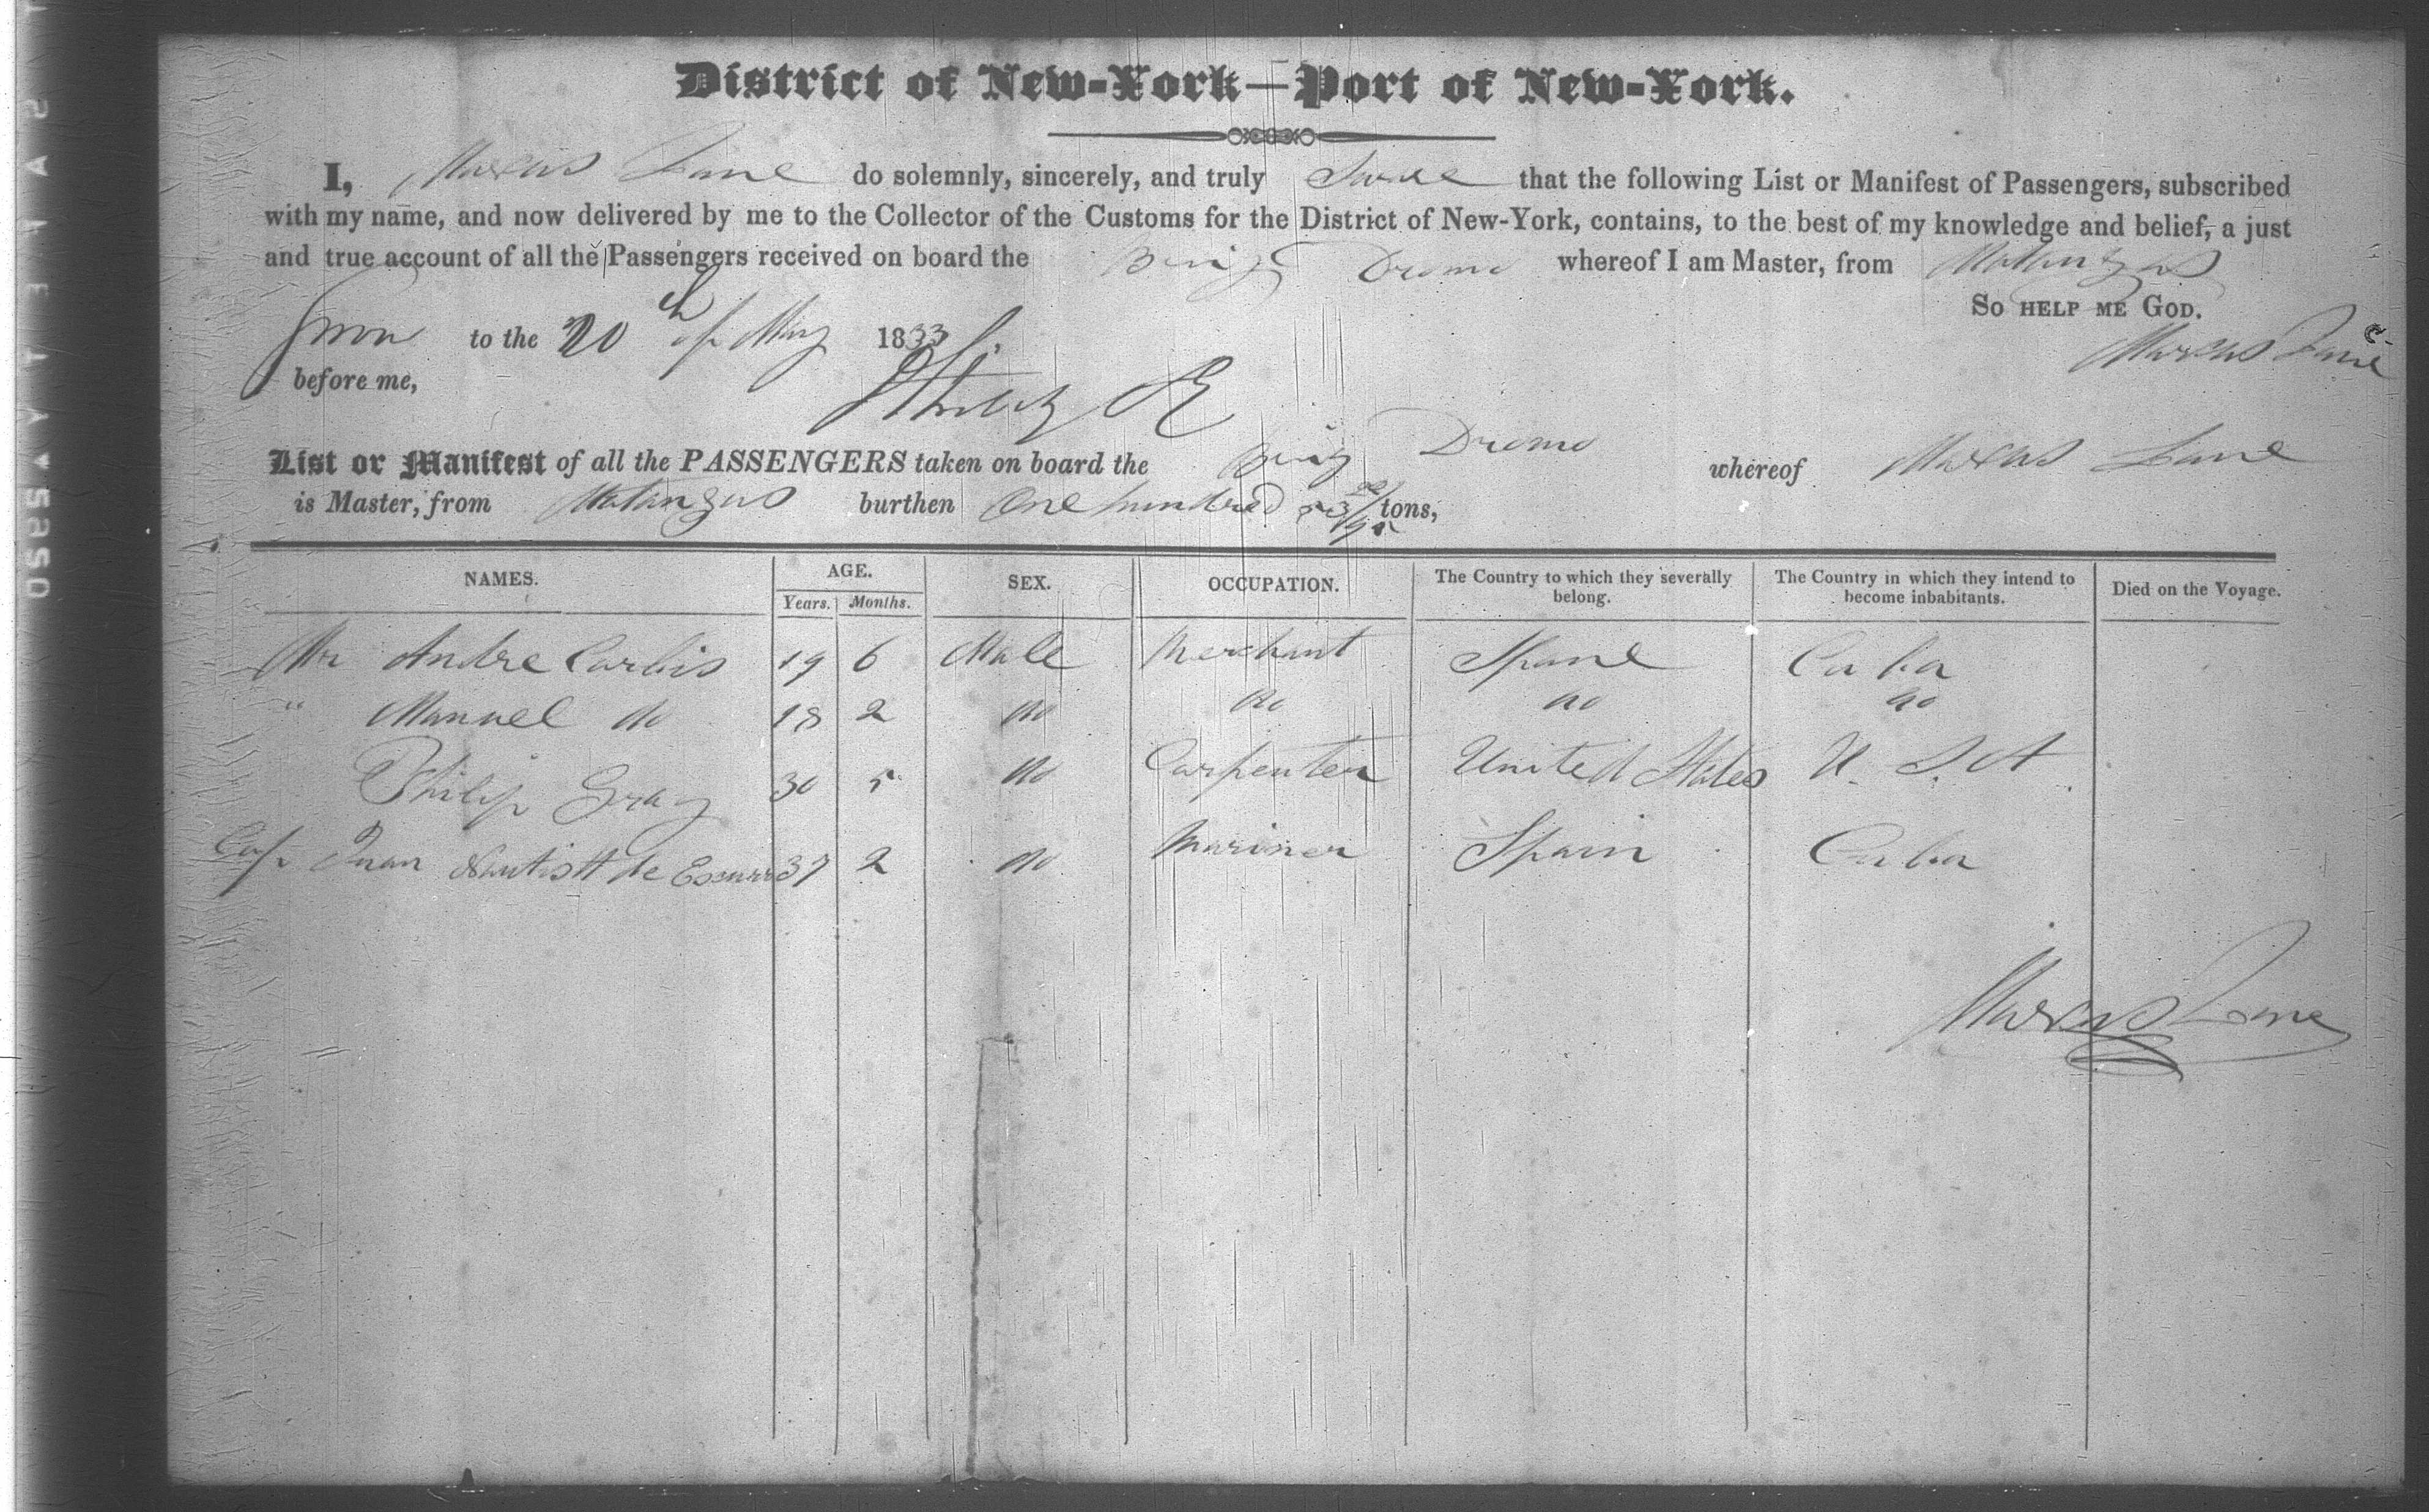 District of New-York—Port of New-York.
I, Marcus Lane do solemnly, sincerely, and truly Swear that the following List or Manifest of Passengers, subscribed
with my name, and now delivered by me to the Collector of the Customs for the District of New-York, contains, to the best of my knowledge and belief, a just
and true account of all the Passengers received on board the Brig Dromo whereof I am Master, from Matanzas
So help me God.
Sworn to the 20th of May 1833
Marcus Lane
before me,
List or Manifest of all the PASSENGERS taken on board the Brig Dromo whereof Marcus Lane
is Master, from Matanzas burthen One hundred tons,
NAMES. AGE. SEX. OCCUPATION. The Country to which they severally belong. The Country in which they intend to become inhabitants. Died on the Voyage.
Years. Months.
Mr Andre Carbis 19 6 Male Merchant Spane Cuba
" Manuel do 18 2 do do do do
Philip Gray 30 5 do Carpenter United States U. S. A
Cap Juan Bautistt de 37 2 do Mariner Spain Cuba
Marcus Lane